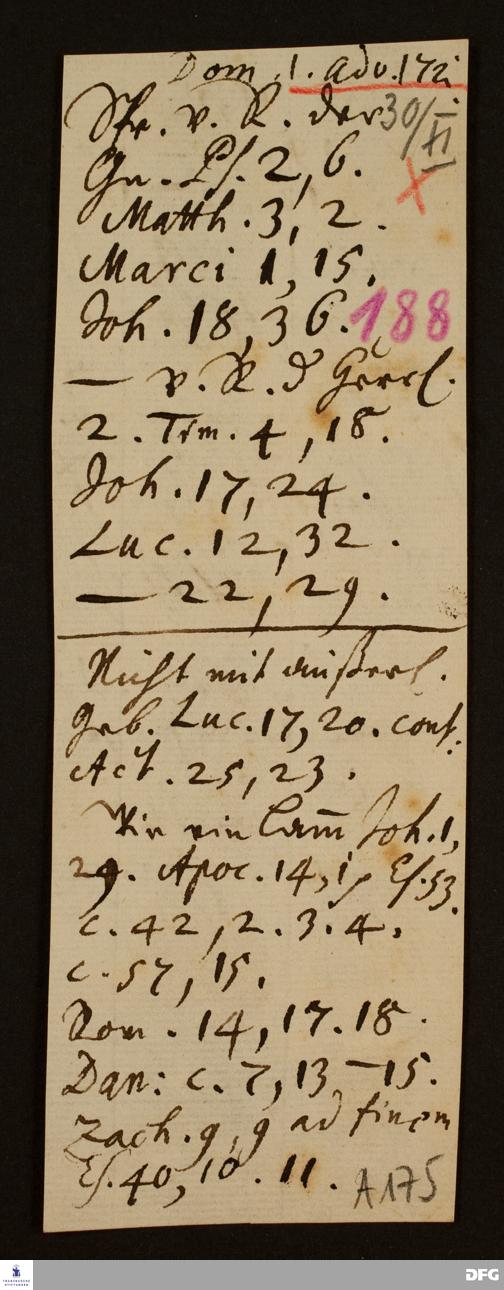 Dom. 1. Adv. 172
Spr. v. R. der 30/XI
Gn. Ps. 2, 6.
Matth. 3, 2.
Marci 1, 15.
Joh. 18, 36. 188
— v. R. d Herrl.
2. Tim. 4, 18.
Joh. 17, 24.
Luc. 12, 32.
— 22, 29.
Nicht mit äußerl.
Geb. Luc. 17, 20. conf.
Act. 25, 23.
Wie ein Lam̄ Joh. 1,
29. Apoc. 14, 1, Es. 53.
c. 42, 2. 3. 4.
c. 57, 15.
Rom. 14, 17. 18.
Dan: c. 7, 13—15.
Zach. 9, 9 ad finem
Es. 40, 10. 11. A175
FRANCKESCHE STIFTUNGEN
DFG